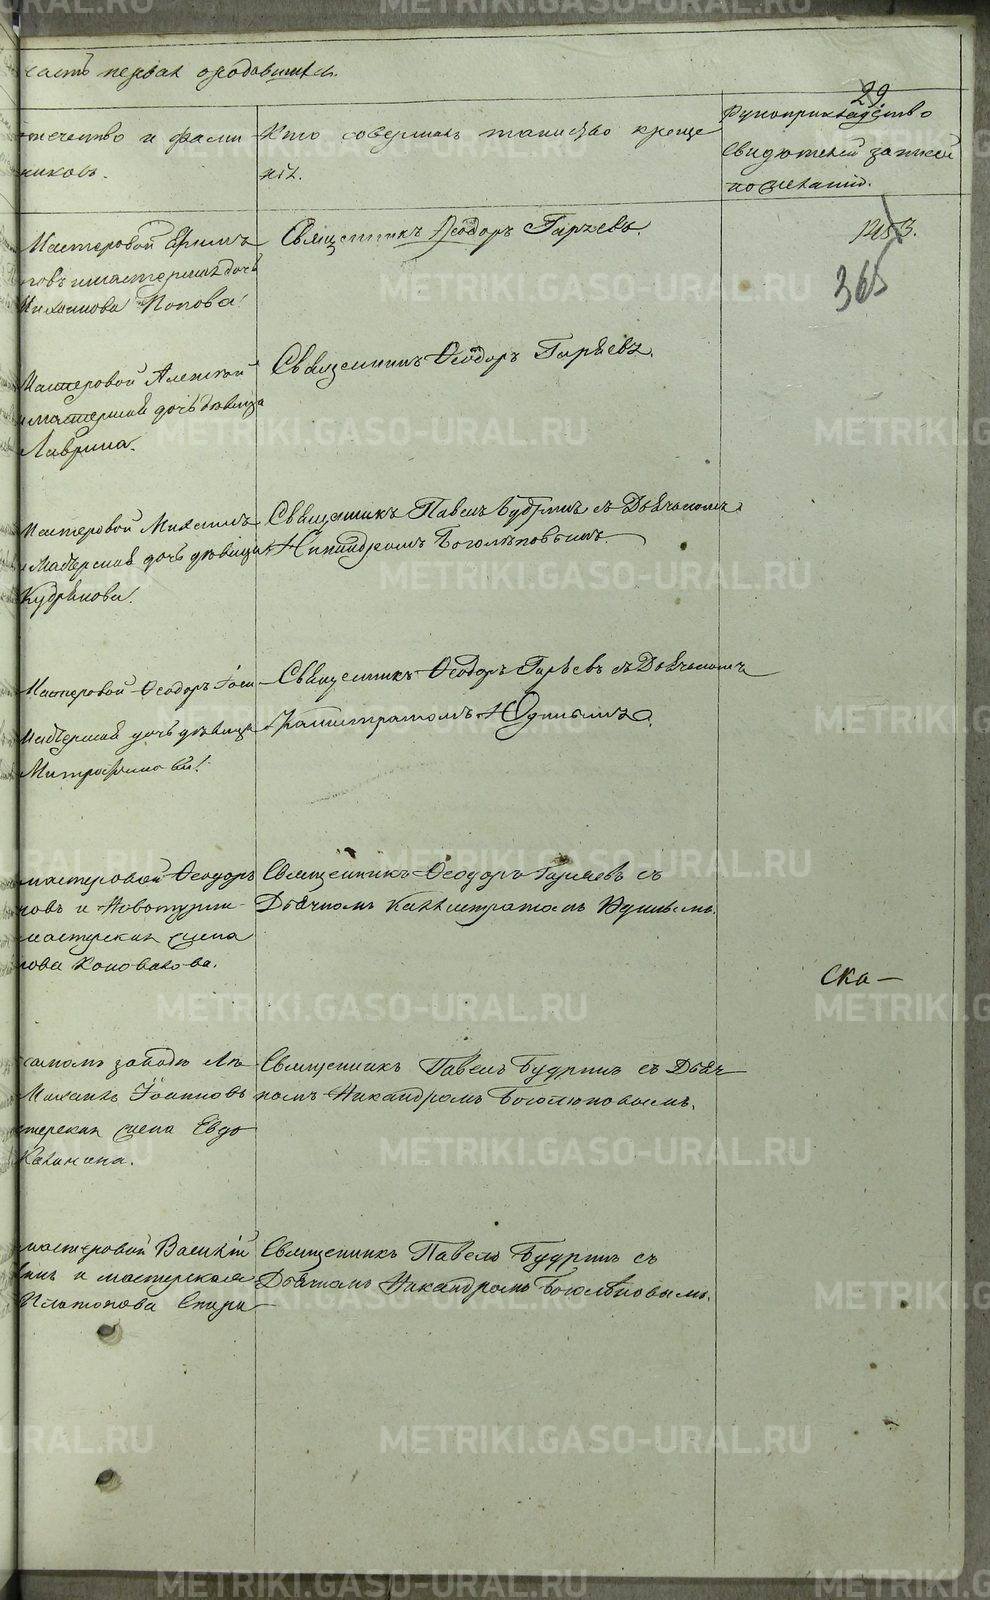 часть первая о родавшихся.
29
течество и фами-
никовъ.
Кто совершалъ таинство креще
нія.
Рукоприкладство
свидѣтелей записи
по желанію.
Мастеровой Ефимъ
новъ и мастерская дочь
Попова.
Священникъ Ѳеодоръ Гаряевъ.
365
Мастеровой Алексѣй
мастерская дочь дѣвица
Лаврина.
Священникъ Ѳеодоръ Гаряевъ.
Мастеровой
Мастерская дочь дѣвица
Кудрякова.
Священникъ Павелъ Будринъ съ Дьячкомъ
Никандромъ Боголѣповымъ.
Мастеровой Ѳеодоръ
Мастерская дочь дѣвица
Митрофанова.
Священникъ Ѳеодоръ Гаряевъ съ Дьячкомъ
Каллистратомъ Юдинымъ.
мастеровой Ѳеодоръ
новъ и Новотурин-
мастерская жена
Коновалова.
Священникъ Ѳеодоръ Гаряевъ съ
Дьячкомъ Каллистратомъ Юдинымъ.
Ска-
Михаилъ Іоанновъ
терская жена Евдо
Калинина.
Священникъ Павелъ Будринъ съ Дьяч
комъ Никандромъ Боголѣповымъ.
мастеровой Василій
и мастерская
Платонова Спири
Священникъ Павелъ Будринъ съ
Дьячкомъ Никандромъ Боголѣповымъ.
METRIKI.GASO-URAL.RU